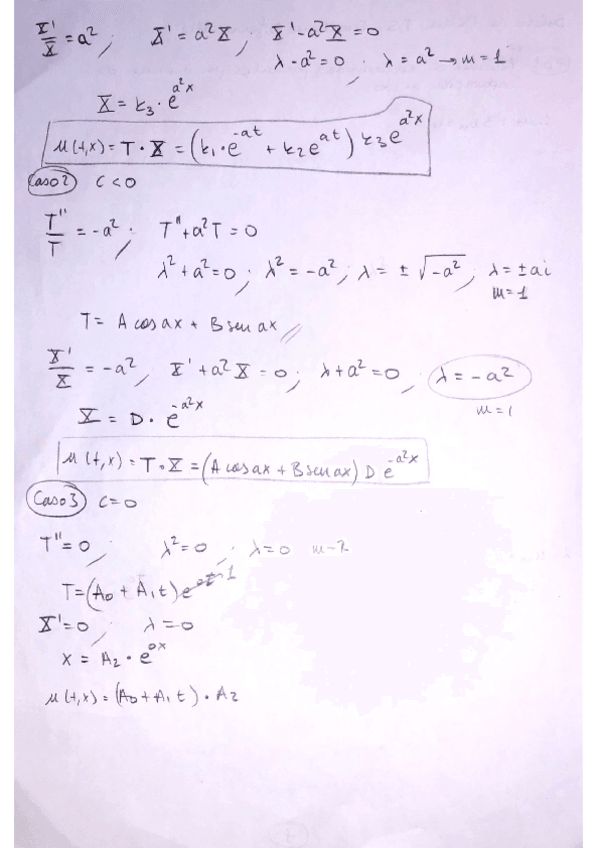 X'/X = a² ; X' = a² X ; X' - a² X = 0
λ - a² = 0 ; λ = a² → m = 1
X = k₃ · e^(a²x)
u(t,x) = T · X = (k₁ · e^(-at) + k₂ e^(at)) k₃ e^(a²x)
Caso 2 C < 0
T''/T = -a² ; T'' + a² T = 0
λ² + a² = 0 ; λ² = -a² ; λ = ± √(-a²) ; λ = ± ai
m = 1
T = A cos ax + B sen ax
X'/X = -a² ; X' + a² X = 0 ; λ + a² = 0 ; λ = -a²
m = 1
X = D · e^(-a²x)
u(t,x) = T · X = (A cos ax + B sen ax) D e^(-a²x)
Caso 3 C = 0
T'' = 0 ; λ² = 0 ; λ = 0 m = 2
T = (A₀ + A₁ t) e 1
X' = 0 ; λ = 0
x = A₂ · e^(0x)
u(t,x) = (A₀ + A₁ t) · A₂